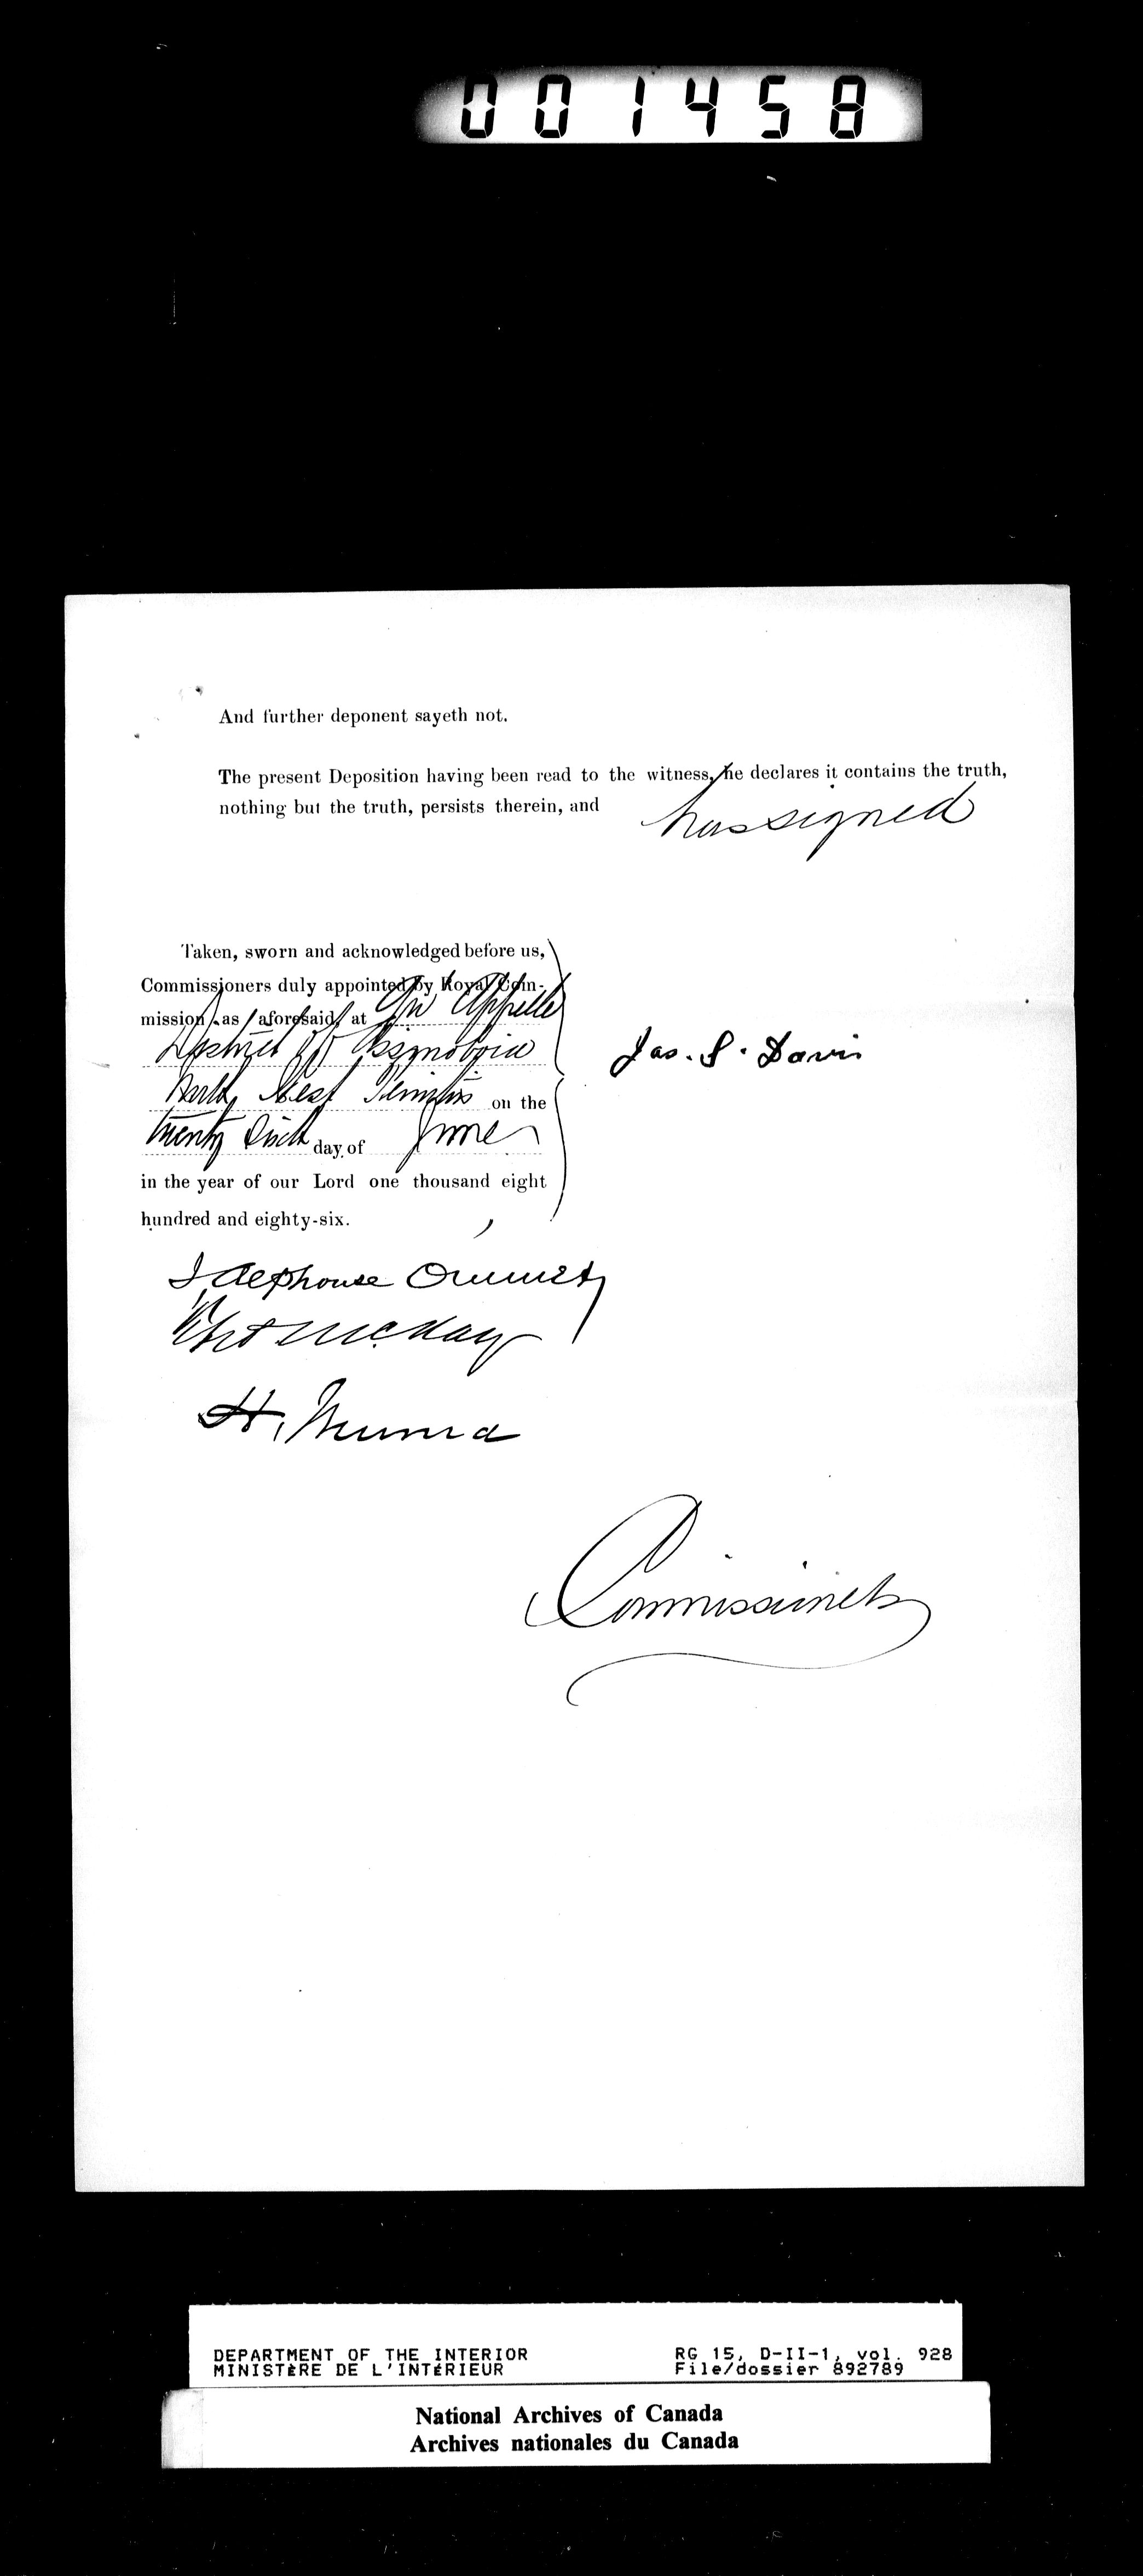 001458
And further deponent sayeth not.
The present Deposition having been read to the witness, he declares it contains the truth,
nothing but the truth, persists therein, and has signed
Taken, sworn and acknowledged before us,
Commissioners duly appointed by Royal Com-
mission, as aforesaid, at Qu'Appelle
District of Assiniboia
North West on the
twenty day of June
in the year of our Lord one thousand eight
hundred and eighty-six.
Jas. S. Davis
Ildephonse Ouimet
McKay
H.
Commissioners
DEPARTMENT OF THE INTERIOR RG 15, D-II-1, vol. 928
MINISTÈRE DE L'INTÉRIEUR File/dossier 892789
National Archives of Canada
Archives nationales du Canada